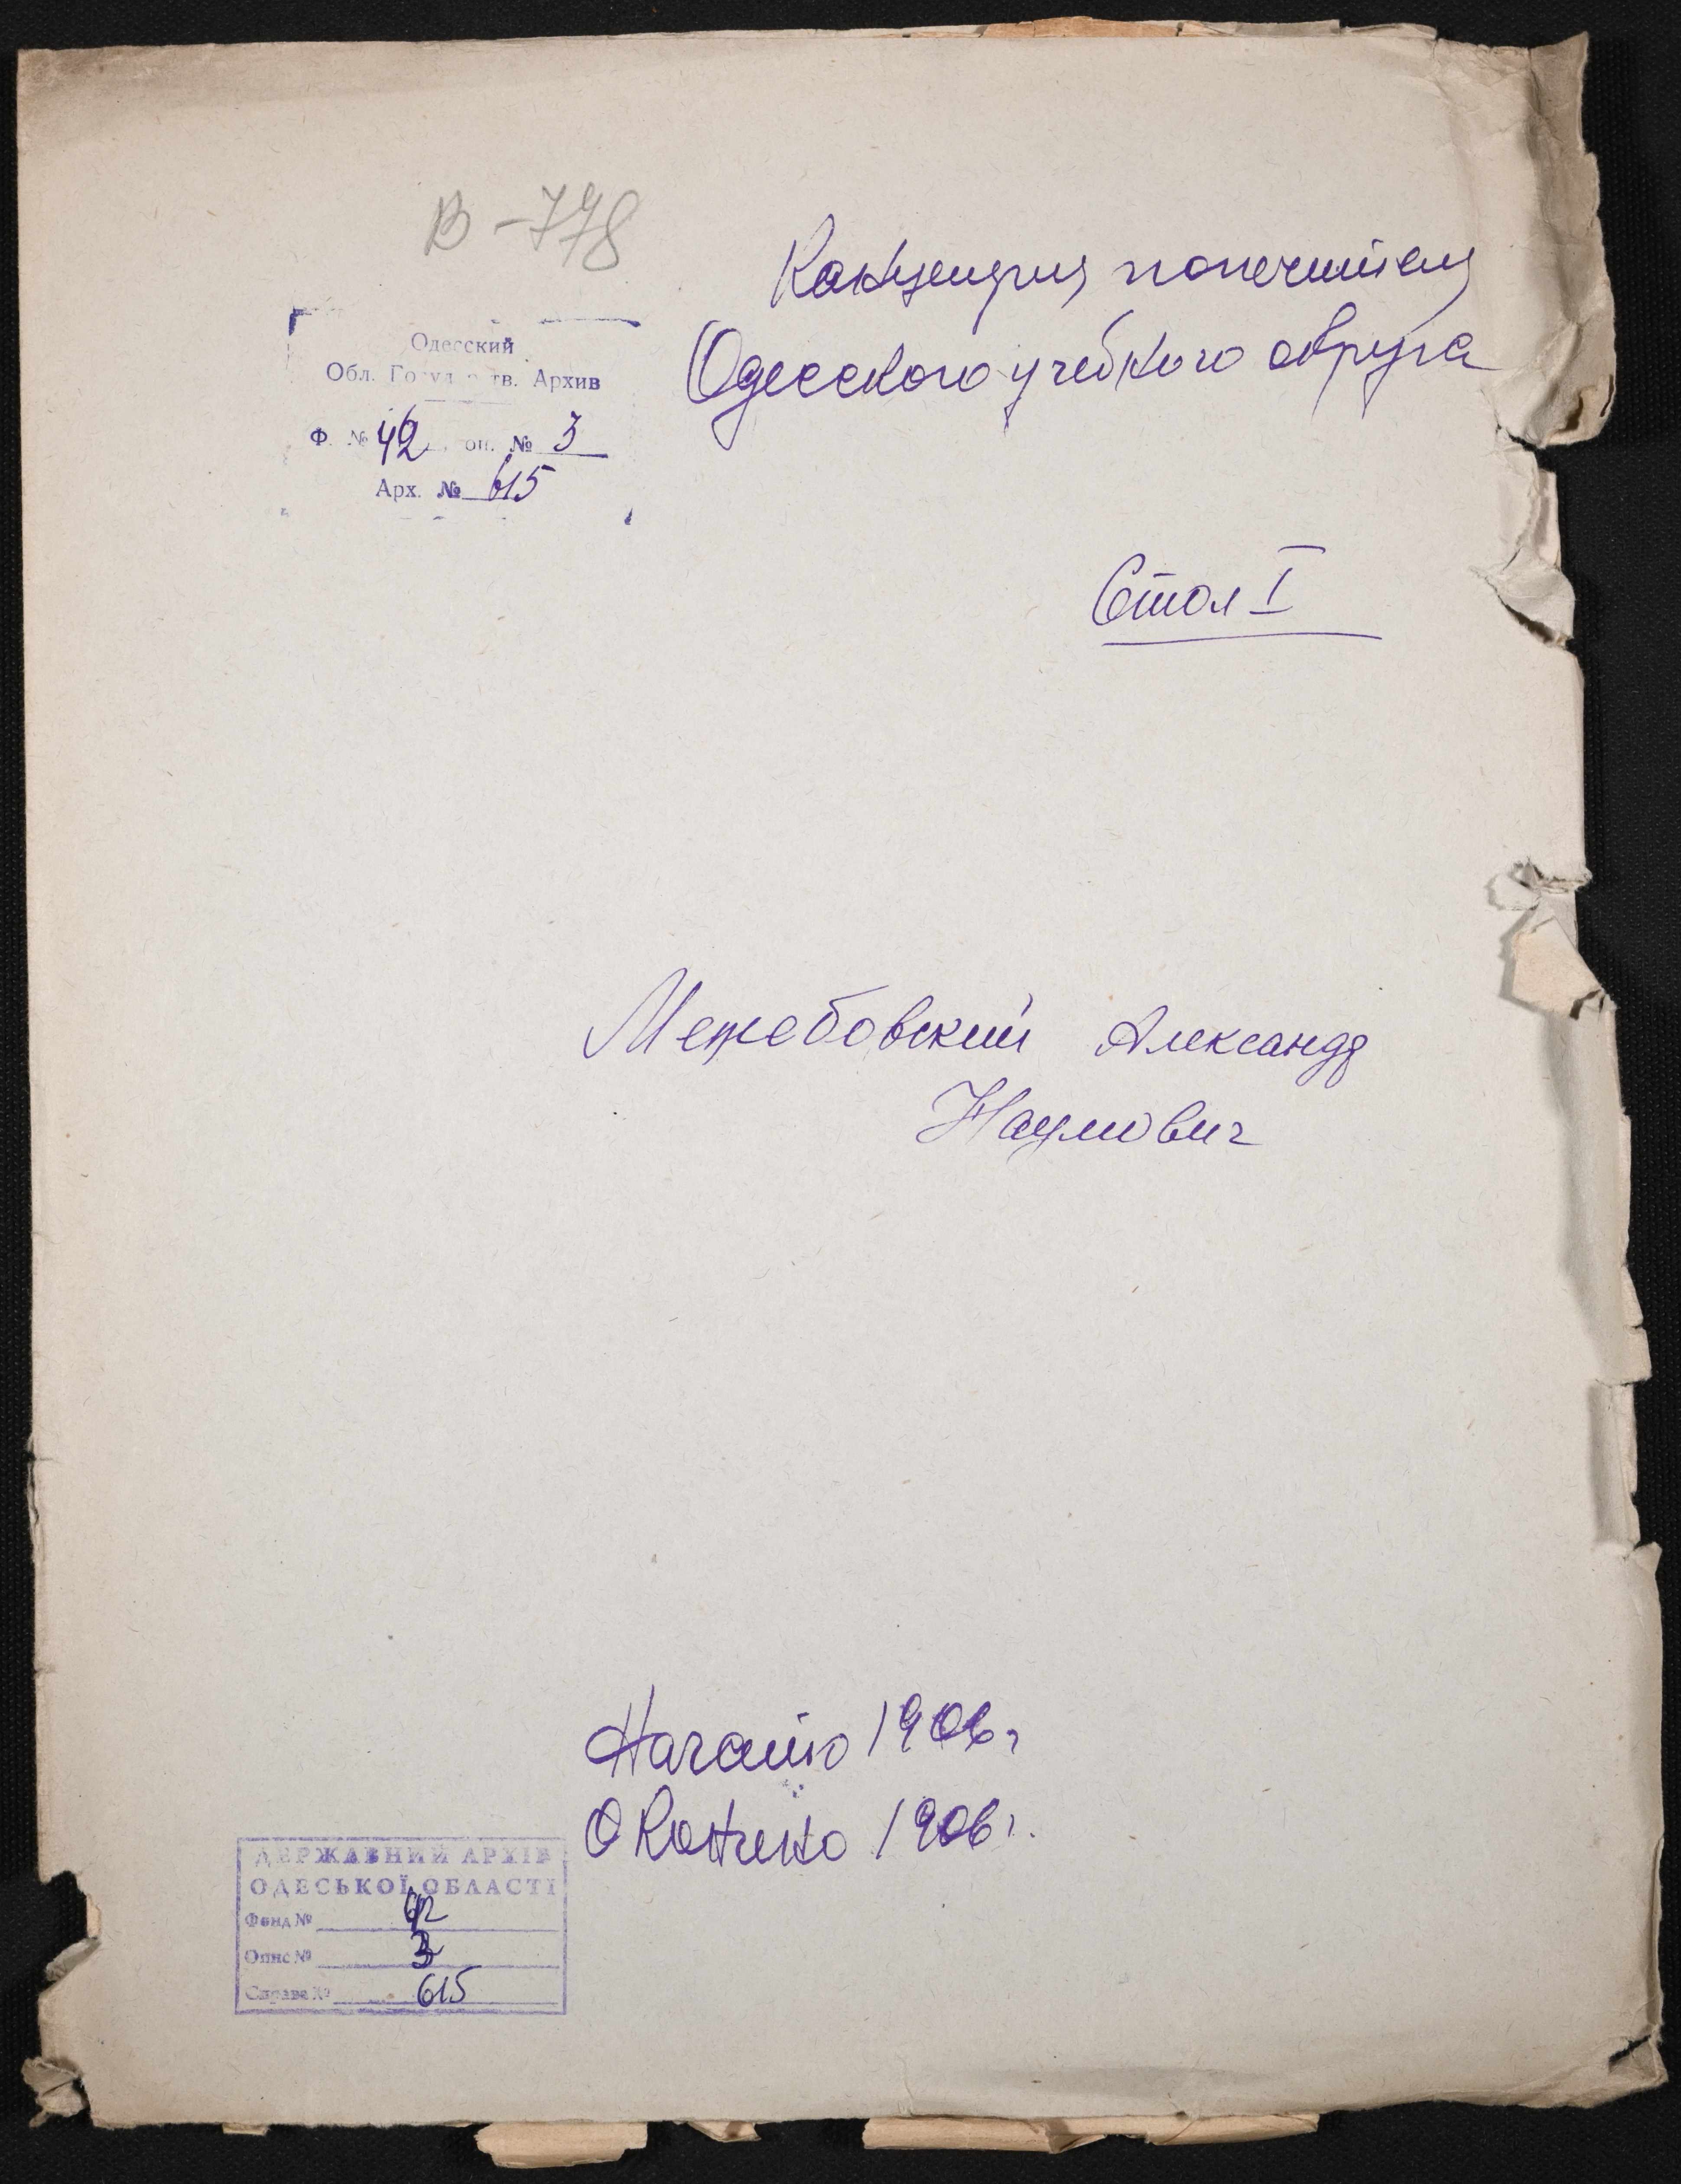 В-778
Канцелярия попечителя
Одесского учебного округа
Одесский
Обл. Государств. Архив
Ф. № 42 оп. № 3
Арх. № 615
Стол I
Межебовский Александр
Наумович
Начато 1906 г
Окончено 1906 г.
ДЕРЖАВНИЙ АРХІВ
ОДЕСЬКОЇ ОБЛАСТІ
Фонд № 42
Опис № 3
Справа № 615